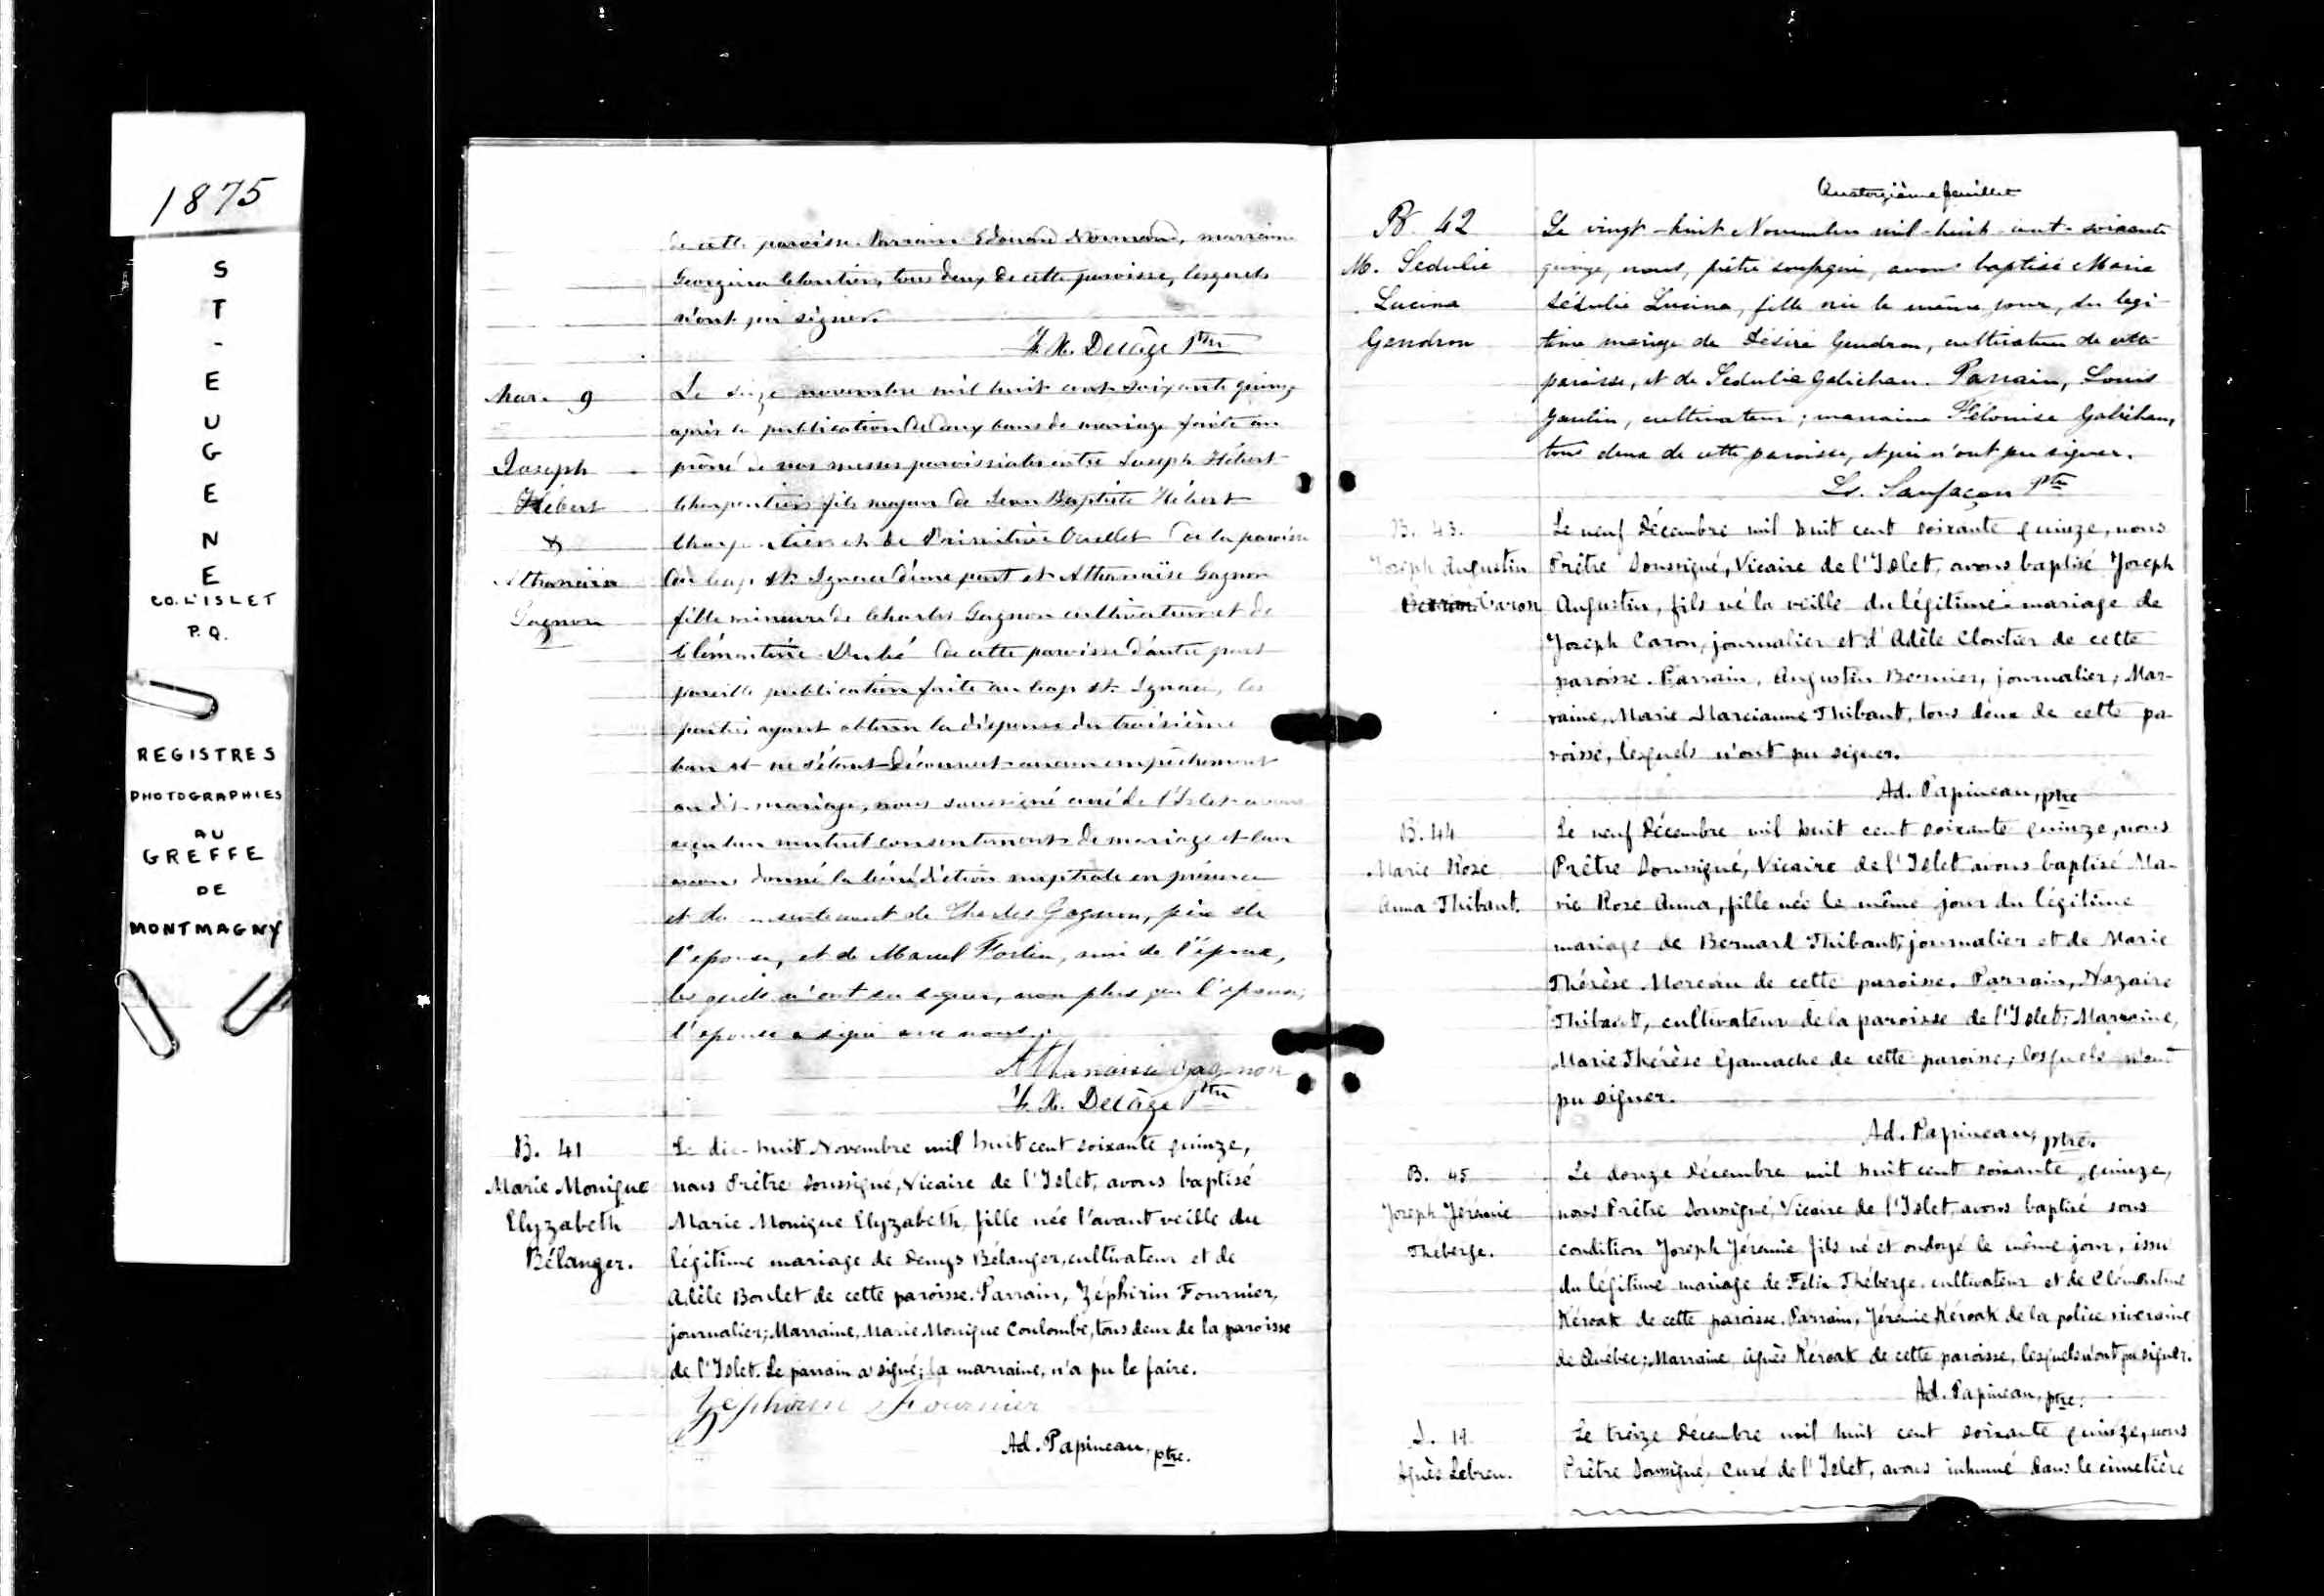 1875
S
T
-
E
U
G
E
N
E
CO. L'ISLET
P.Q.
REGISTRES
PHOTOGRAPHIES
AU
GREFFE
DE
MONTMAGNY
de cette paroisse. Parrain Edouard Normand, marraine
Georgina Cloutier, tous deux de cette paroisse, lesquels
n'ont pu signer.
F. X. Delâge Ptre
Mar. 9
Joseph
Hébert
&
Athanaïse
Gagnon
Le seize novembre mil huit cent soixante quinze
après la publication de deux bans de mariage faite au
prône de nos messes paroissiales entre Joseph Hébert
Charpentier fils majeur de Jean Baptiste Hébert
Charpentier et de Primitive Ouellet de la paroisse
du Cap St. Ignace d'une part et Athanaïse Gagnon
fille mineure de Charles Gagnon cultivateur et de
Clémentine Dubé de cette paroisse d'autre part
pareille publication faite au Cap St. Ignace, les
parties ayant obtenu la dispense du troisième
ban et ne s'étant découvert aucun empêchement
au dit mariage, nous soussigné curé de l'Islet avons
reçu leur mutuel consentement de mariage et leur
avons donné la bénédiction nuptiale en présence
et du consentement de Charles Gagnon, père de
l'épouse, et de Marcel Fortin, ami de l'époux,
lesquels n'ont su signer, non plus que l'époux;
l'épouse a signé avec nous.
Athanaise Gagnon
F. X. Delâge Ptre
B. 41
Marie Monique
Elyzabeth
Bélanger.
Le dix-huit Novembre mil huit cent soixante quinze,
nous Prêtre Soussigné, Vicaire de l'Islet, avons baptisé
Marie Monique Elyzabeth, fille née l'avant veille du
légitime mariage de Denys Bélanger, cultivateur et de
Adèle Boulet de cette paroisse. Parrain, Zéphirin Fournier,
journalier; Marraine, Marie Monique Coulombe, tous deux de la paroisse
de l'Islet. Le parrain a signé; la marraine, n'a pu le faire.
Zéphirin Fournier
Ad. Papineau, ptre.
Quatorzième feuillet
B. 42
M. Sedulie
Lucina
Gendron
Le vingt-huit Novembre mil-huit-cent-soixante
quinze, nous, prêtre soussigné, avons baptisé Marie
Sédulie Lucina, fille née le même jour, du légi-
time mariage de Désiré Gendron, cultivateur de cette
paroisse, et de Sedulie Galichan. Parrain, Louis
Gaulin, cultivateur; marraine Hélouise Galichan,
tous deux de cette paroisse, et qui n'ont pu signer.
Ls. Sanfaçon Ptre
B. 43.
Joseph Augustin
Caron
Le neuf Décembre mil huit cent soixante quinze, nous
Prêtre Soussigné, Vicaire de l'Islet, avons baptisé Joseph
Augustin, fils né la veille du légitime mariage de
Joseph Caron, journalier et d'Adèle Cloutier de cette
paroisse. Parrain, Augustin Bernier, journalier; Mar-
raine, Marie Marcianne Thibaut, tous deux de cette pa-
roisse, lesquels n'ont pu signer.
Ad. Papineau, ptre
B. 44
Marie Rose
Anna Thibaut.
Le neuf Décembre mil huit cent soixante quinze, nous
Prêtre Soussigné, Vicaire de l'Islet avons baptisé Ma-
rie Rose Anna, fille née le même jour du légitime
mariage de Bernard Thibaut, journalier et de Marie
Thérèse Moreau de cette paroisse. Parrain, Nazaire
Thibaut, cultivateur de la paroisse de l'Islet; Marraine,
Marie Thérèse Gamache de cette paroisse; lesquels n'ont
pu signer.
Ad. Papineau, ptre.
B. 45
Joseph Jérémie
Théberge.
Le douze Décembre mil huit cent soixante quinze,
nous Prêtre Soussigné, Vicaire de l'Islet, avons baptisé sous
condition Joseph Jérémie fils né et ondoyé le même jour, issu
du légitime mariage de Felix Théberge, cultivateur et de Clémentine
Kéroak de cette paroisse. Parrain, Jérémie Kéroak de la police riveraine
de Québec; Marraine, Agnès Kéroak de cette paroisse, lesquels n'ont pu signer.
Ad. Papineau, ptre.
S. 19
Agnès Lebreu.
Le treize Décembre mil huit cent soixante quinze, nous
Prêtre Soussigné, Curé de l'Islet, avons inhumé dans le cimetière